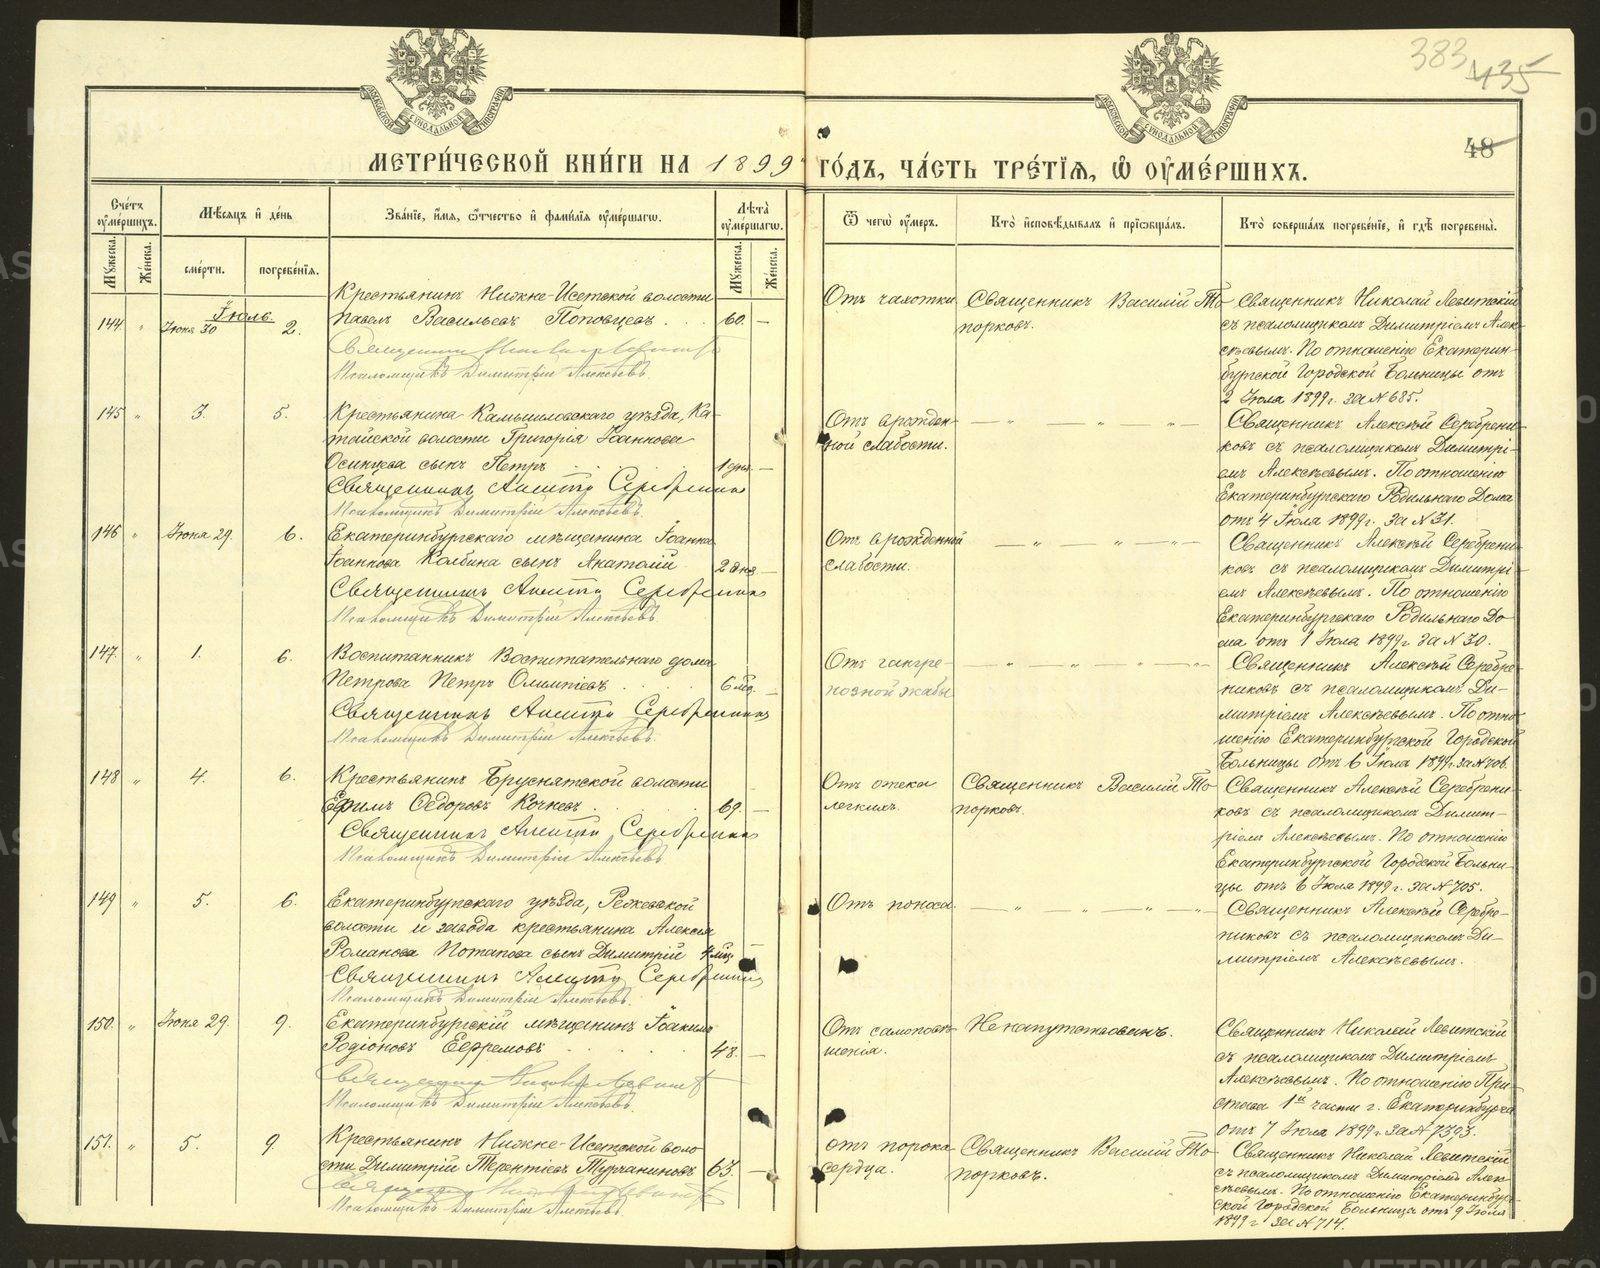 383
435
48
МЕТРИ́ЧЕСКОЙ КНИ́ГИ НА 1899 ГО́ДЪ, ЧА́СТЬ ТРЕ́ТІЯ, Ѡ ОУМЕ́РШИХЪ.
Сче́тъ оуме́ршихъ.
Мѣ́сяцъ и де́нь
Зва́ніе, и́мя, ѻ҆́тчество и фами́лія оуме́ршагѡ.
Лѣта̀ оуме́ршагѡ.
Ѿ чегѡ̀ оу́меръ.
Кто̀ исповѣ́дывалъ и пріѡбща́лъ.
Кто̀ соверша́лъ погребе́ніе, и гдѣ̀ погребены̀.
Мꙋ́жеска.
Же́нска.
сме́рти.
погребе́нія.
Мꙋ́жеска.
Же́нска.
Іюль
144 " Іюня 30 2.
Крестьянинъ Нижне-Исетской волости
Павелъ Васильевъ Поповцевъ . . 60. —
Псаломщикъ Димитрій Алексѣевъ.
Отъ чахотки
Священникъ Василій То-
порковъ.
Священникъ Николай Левитскій
съ псаломщикомъ Димитріемъ Алек-
сѣевымъ. По отношенію Екатерин-
бургской Городской Больницы отъ
2 Іюла 1899 г. за № 685.
145 " 3. 5.
Крестьянина Камышловскаго уѣзда, Ка-
тайской волости Григорія Іоаннова
Осинцева сынъ Петръ . . 1 дня. —
Священникъ Серебрениковъ
Псаломщикъ Димитрій Алексѣевъ.
Отъ врожден-
ной слабости.
— " — " — " —
Священникъ Алексѣй Серебрени-
ковъ съ псаломщикомъ Димитрі-
емъ Алексѣевымъ. По отношенію
Екатеринбургскаго Родильнаго Дома
отъ 4 Іюла 1899 г. за № 31.
146 " Іюня 29. 6.
Екатеринбургскаго мѣщанина Іоанна
Іоаннова Колбина сынъ Анатолій 2 дня —
Священникъ Серебрениковъ
Псаломщикъ Димитрій Алексѣевъ.
Отъ врожденной
слабости.
— " — " — " —
Священникъ Алексѣй Серебрени-
ковъ съ псаломщикомъ Димитрі-
емъ Алексѣевымъ. По отношенію
Екатеринбургскаго Родильнаго До-
ма отъ 1 Іюла 1899 г. за № 30.
147. " 1. 6.
Воспитанникъ Воспитательнаго дома
Петрова Петръ Олимпіевъ . . . 6 мѣс. —
Священникъ Серебрениковъ
Псаломщикъ Димитрій Алексѣевъ.
Отъ гангре-
нозной жабы
— " — " — " —
Священникъ Алексѣй Серебре-
никовъ съ псаломщикомъ Ди-
митріемъ Алексѣевымъ. По отно-
шенію Екатеринбургской Городской
Больницы отъ 6 Іюла 1899 г. за № 706.
148 " 4. 6.
Крестьянинъ Бруснятской волости
Ефимъ Ѳедоровъ Кочневъ . . . . 69. —
Священникъ Серебрениковъ
Псаломщикъ Димитрій Алексѣевъ
Отъ отека
легкихъ.
Священникъ Василій То-
порковъ.
Священникъ Алексѣй Серебрени-
ковъ съ псаломщикомъ Димит-
ріемъ Алексѣевымъ. По отношенію
Екатеринбургской Городской Больни-
цы отъ 6 Іюля 1899 г. за № 705.
149 " 5. 6.
Екатеринбургскаго уѣзда, Режевской
волости и завода крестьянина Алексѣя
Романова Потапова сынъ Димитрій 4 мѣс. —
Священникъ Серебрениковъ
Псаломщикъ Димитрій Алексѣевъ.
Отъ поноса.
— " — " — " —
Священникъ Алексѣй Серебре-
никовъ съ псаломщикомъ Ди-
митріемъ Алексѣевымъ.
150. " Іюня 29. 9.
Екатеринбургскій мѣщанинъ Іоакимъ
Родіоновъ Ефремовъ . . . . 48. —
Псаломщикъ Димитрій Алексѣевъ.
Отъ самоповѣ-
шенія.
Не напутствованъ.
Священникъ Николай Левитскій
съ псаломщикомъ Димитріемъ
Алексѣевымъ. По отношенію При-
става 1й части г. Екатеринбурга
отъ 7 Іюла 1899 г. за № 7393.
151. " 5. 9.
Крестьянинъ Нижне-Исетской воло-
сти Димитрій Терентіевъ Турчаниновъ 63. —
Псаломщикъ Димитрій Алексѣевъ.
отъ порока
сердца.
Священникъ Василій То-
порковъ.
Священникъ Николай Левитскій
съ псаломщикомъ Димитріемъ Алек-
сѣевымъ. По отношенію Екатеринбург-
ской Городской Больницы отъ 9 Іюля
1899 г за № 714.